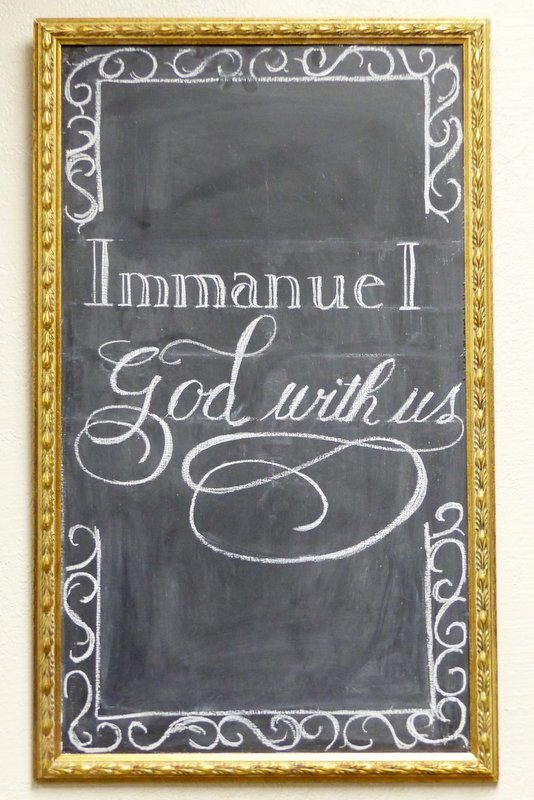 Immanuel
God with us